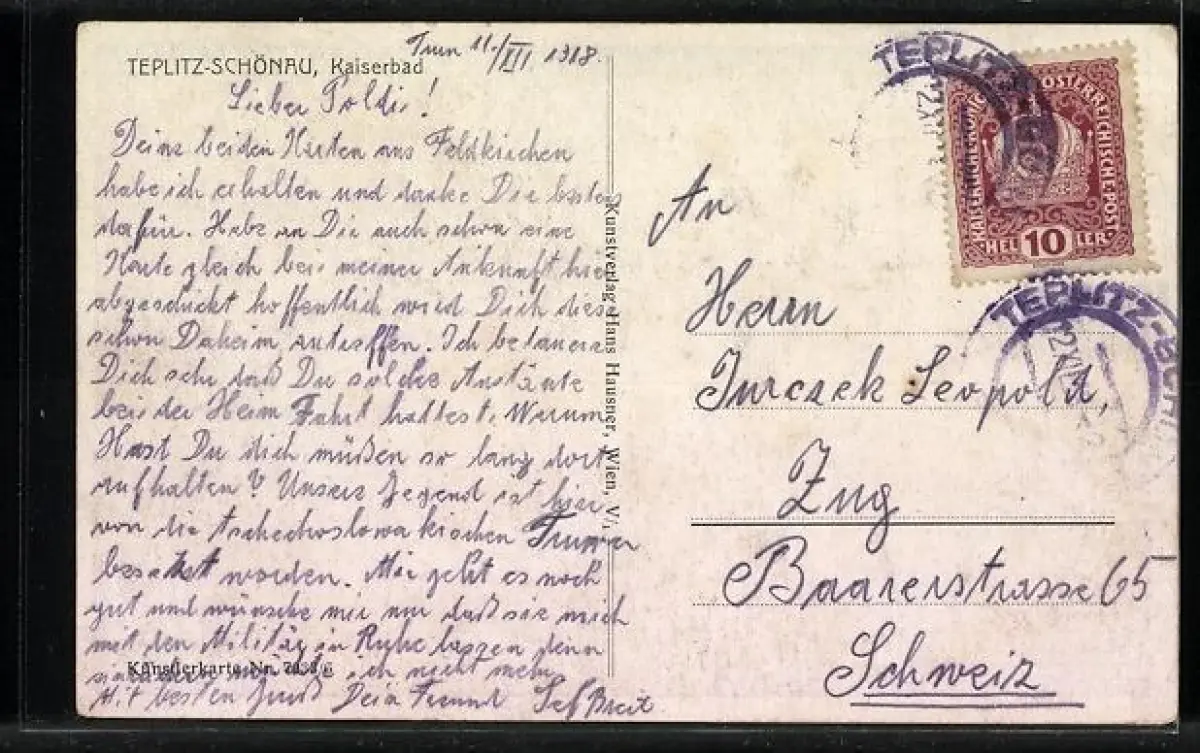 Turn 11./XII 1918.
TEPLITZ-SCHÖNAU, Kaiserbad
Lieber Poldi!
Deine beiden Karten aus Feldkirchen
habe ich erhalten und danke Die bestens
dafür. Habe an Die auch schon eine
Karte gleich bei meiner Ankunft hier
abgeschickt hoffentlich wird Dich diese
schon Daheim antreffen. Ich bedauere
Dich sehr daß Du solche Anstände
bei der Heim Fahrt hattest. Warum
Hast Du dich müßen so lang dort
aufhalten? Unsere Gegend ist hier
von die tschechoslowakischen Truppen
besetzt worden. Mir geht es noch
gut und wünsche mir nur daß sie mich
mit den Militär in Ruhe lassen denn
ich nicht mehr
Künstlerkarte Nr.
Mit besten Gruß Dein Freund
Kunstverlag Hans Hausner, Wien, V.
TEPLITZ
KAISERLICHE KÖNIGLICHE ÖSTERREICHISCHE POST
HEL 10 LER
TEPLITZ-SCHÖ
12 XII
An
Herrn
Jurczek Leopold,
Zug
Baarerstrasse 65
Schweiz